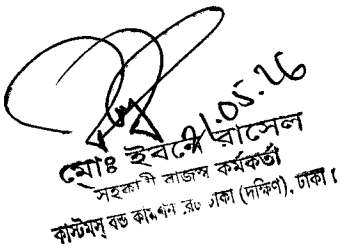 21.05.26
মোঃ ইবনে রাসেল
সহকারী রাজস্ব কর্মকর্তা
কাস্টমস্ বন্ড কমিশনারেট ঢাকা (দক্ষিণ), ঢাকা।